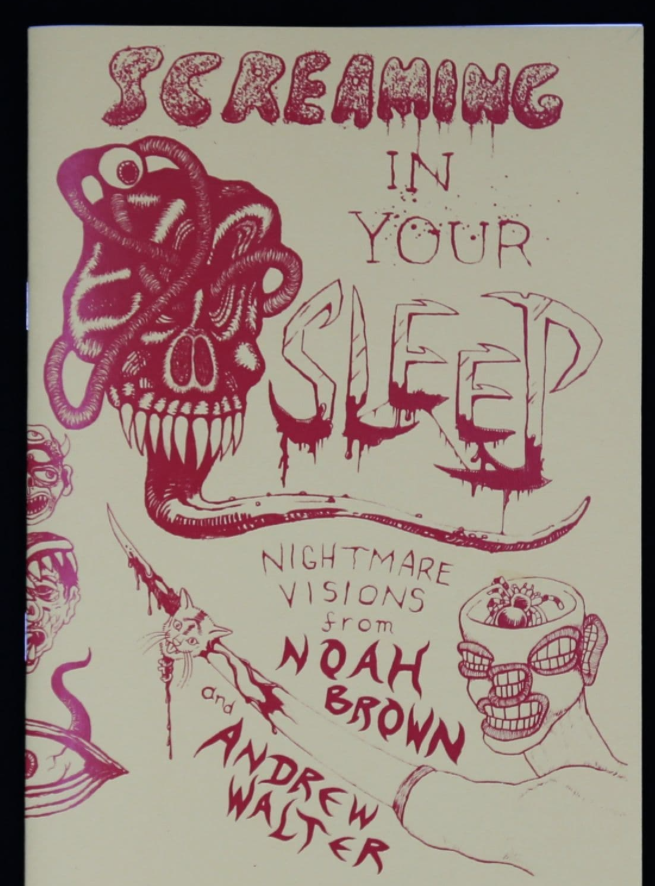 SCREAMING
IN
YOUR
SLEEP
NIGHTMARE
VISIONS
from
NOAH
BROWN
and
ANDREW
WALTER